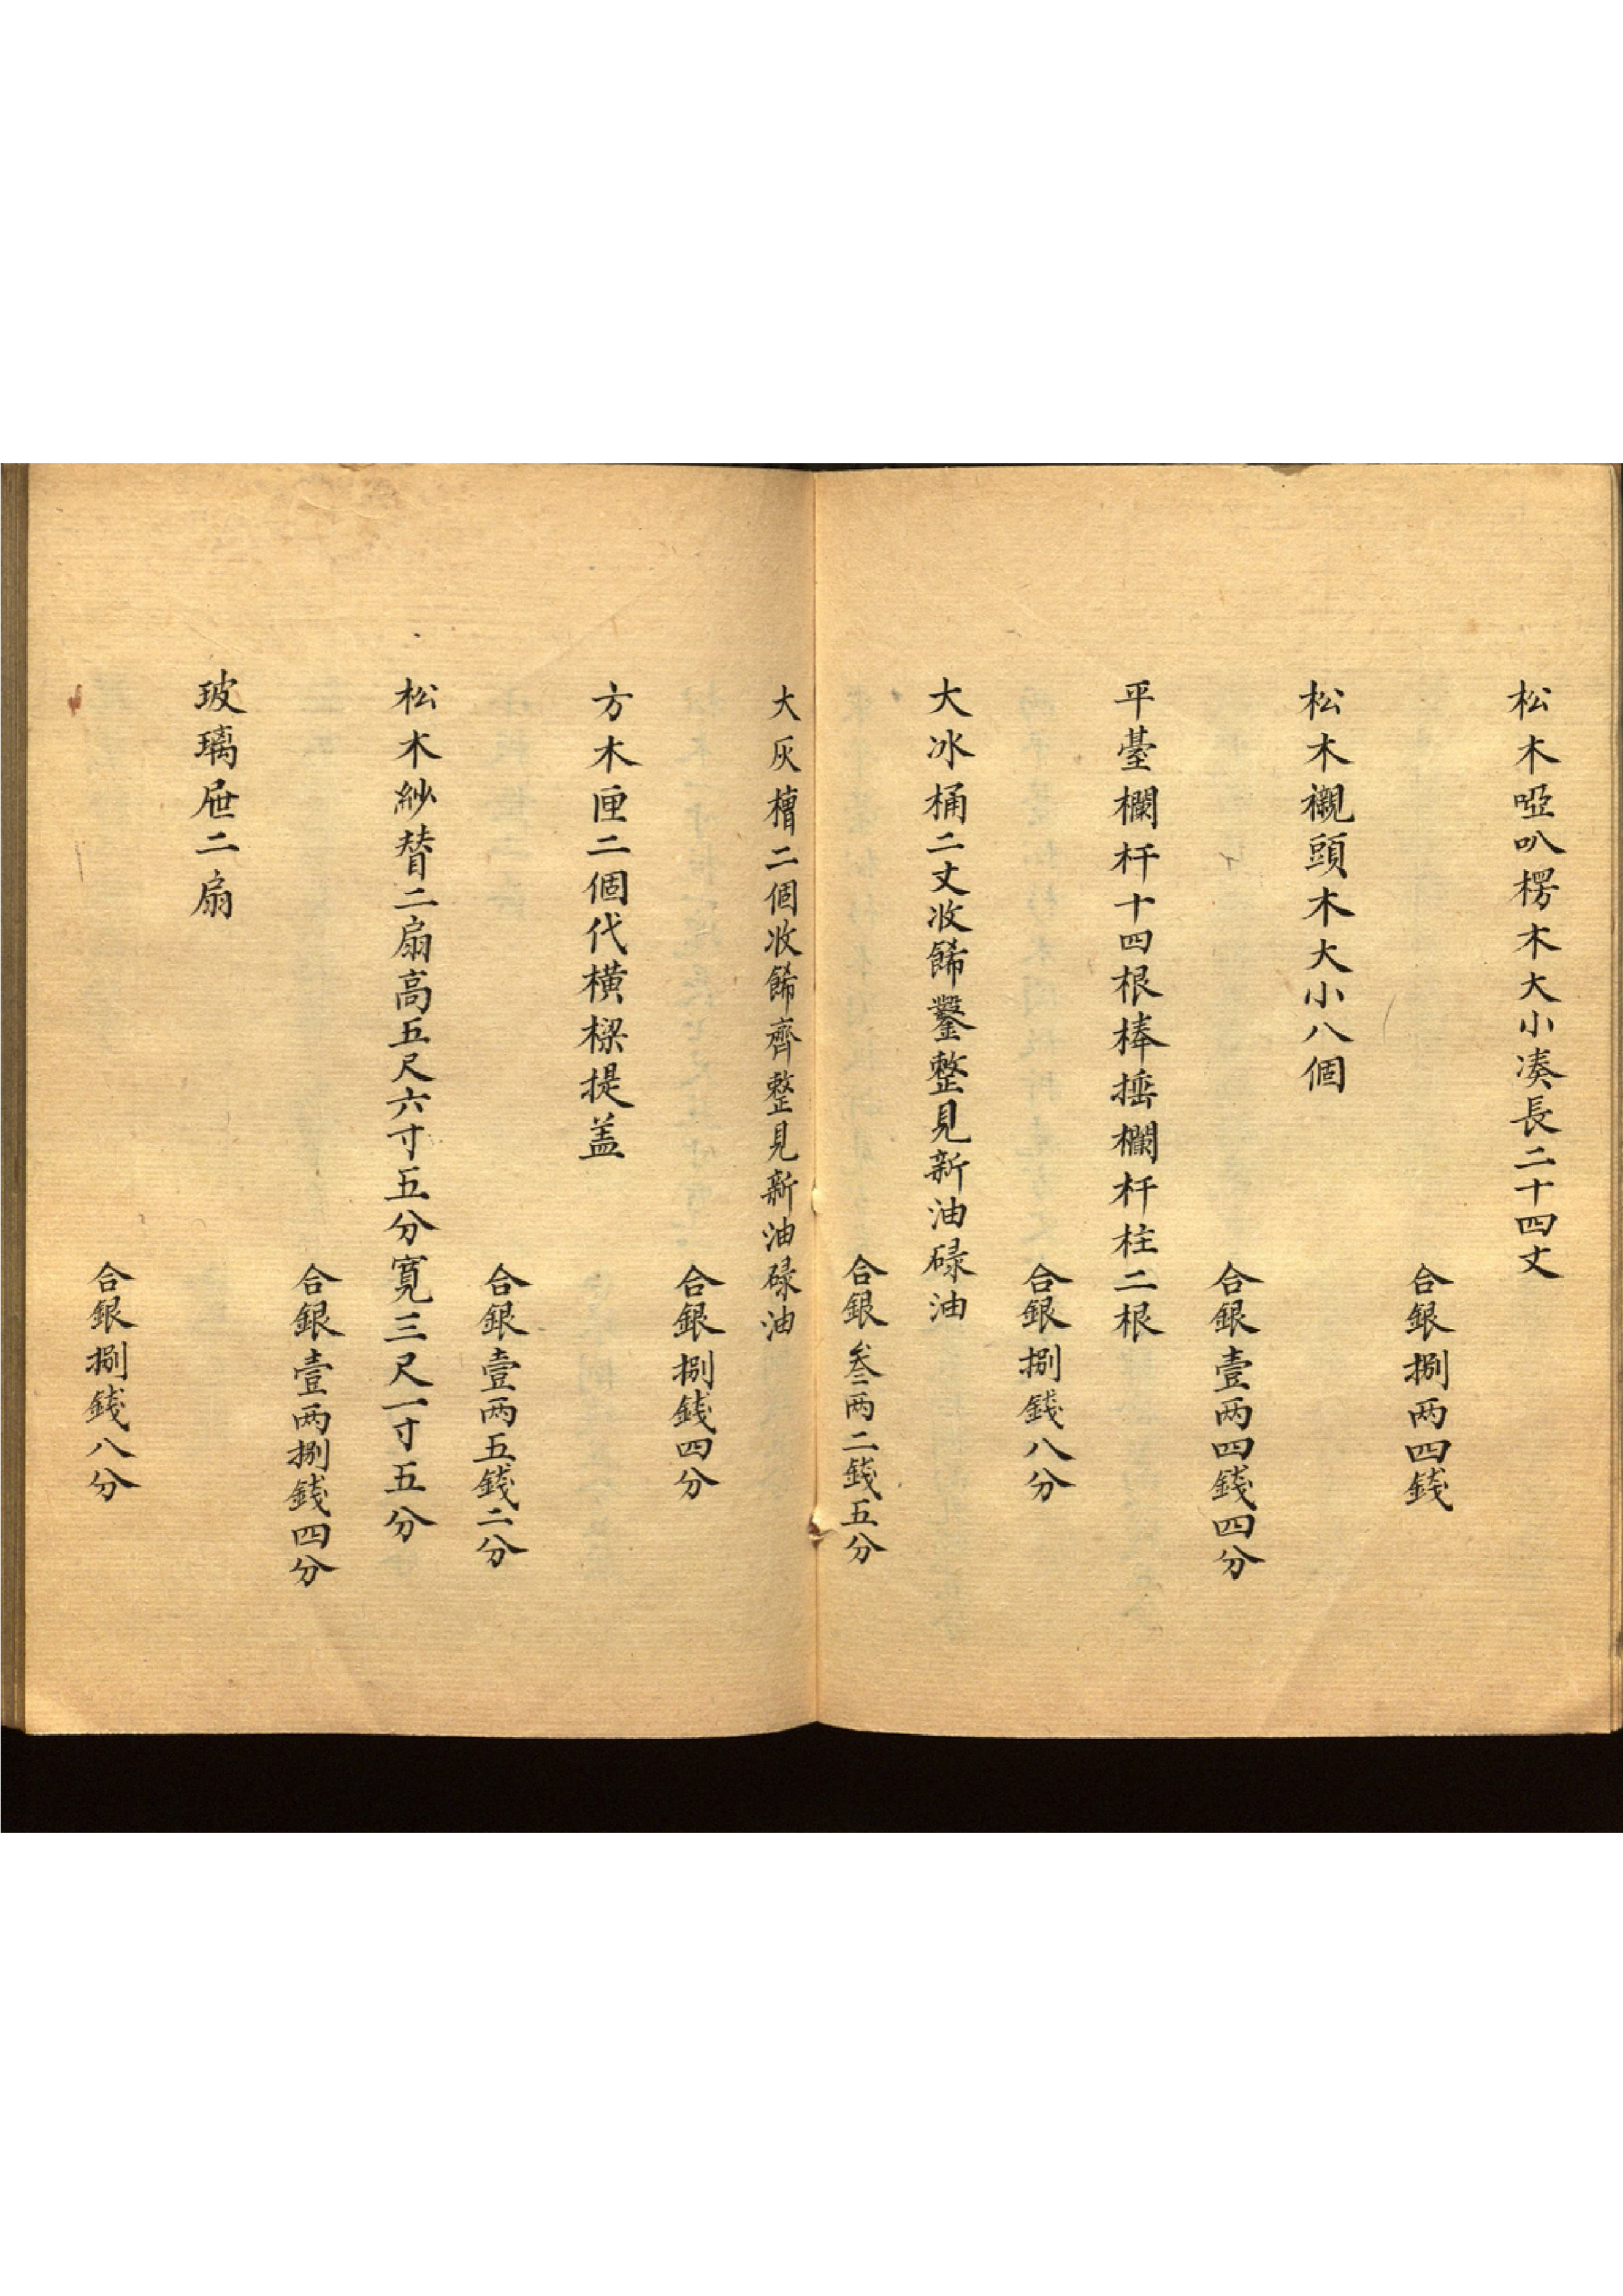 松木啞叭楞木大小凑長二十四丈
合銀捌两四錢
松木襯頭木大小八個
合銀壹两四錢四分
平臺欄杆十四根棒捶欄杆柱二根
合銀捌錢八分
大冰桶二丈收餙鑿整見新油碌油
合銀叁两二錢五分
大灰槽二個收餙齊整見新油碌油
合銀捌錢四分
方木匣二個代横樑提盖
合銀壹两五錢二分
松木紗替二扇高五尺六寸五分寬三尺一寸五分
合銀壹两捌錢四分
玻璃屉二扇
合銀捌錢八分